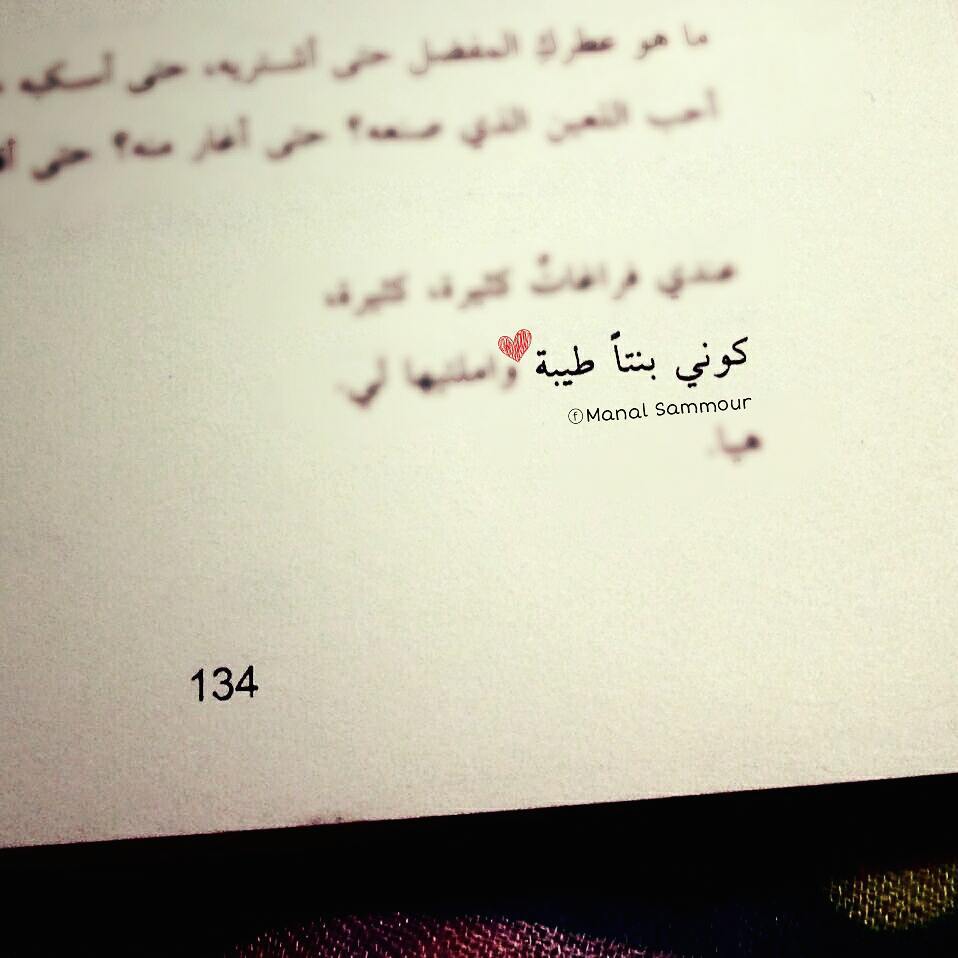 ما هو عطركِ المفضل حتى أشتريه، حتى أسكبه
أحب اللعين الذي صنعه؟ حتى أغار منه؟ حتى
عندي فراغاتٌ كثيرة، كثيرة،
كوني بنتاً طيبة واملئيها لي.
ⓕManal Sammour
هيا.
134